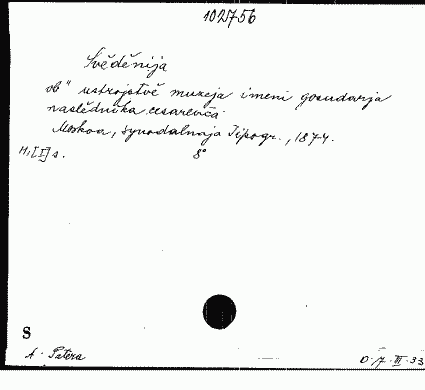 1021756
Svěděnija
ob" ustrojstvě muzeja imeni gosudarja
naslědnika cesareviča
Moskva, Synodalnaja Tipogr., 1874.
[I] s. 8°
S
A. Patera